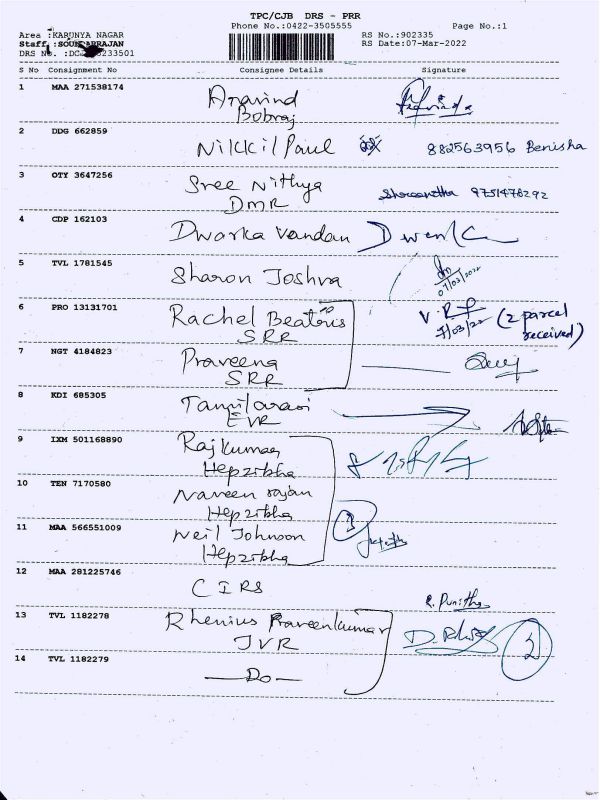 TPC/CJB DRS - PRR
Phone No.:0422-3505555 Page No.:1
Area :KARUNYA NAGAR RS No.:902335
Staff: RS Date:07-Mar-2022
DRS No. 233501
S No Consignment No Consignee Details Signature
1 MAA 271538174 Aravind
Bobraj
2 DDG 662859 Nikkil Paul 882563956 Benisha
3 OTY 3647256 Sree Nithya 9751478292
DMR
4 CDP 162103 Dwarka Vandan
5 TVL 1781545 Sharon Joshva 07/03/2022
6 PRO 13131701 Rachel Beatris V.R (2 parcel
SRR 7/03/22 received)
7 NGT 4184823 Praveena
SRR
8 KDI 685305 Tamilarasi
EVR
9 IXM 501168890 Rajkumar
Hepzibha
10 TEN 7170580 Naveen rajan
Hepzibha
11 MAA 566551009 Neil Johnson 3
Hepzibha
12 MAA 281225746 CIRS R. Punitha
13 TVL 1182278 Rhenius Praveenkumar
JVR 2
14 TVL 1182279 —Do—